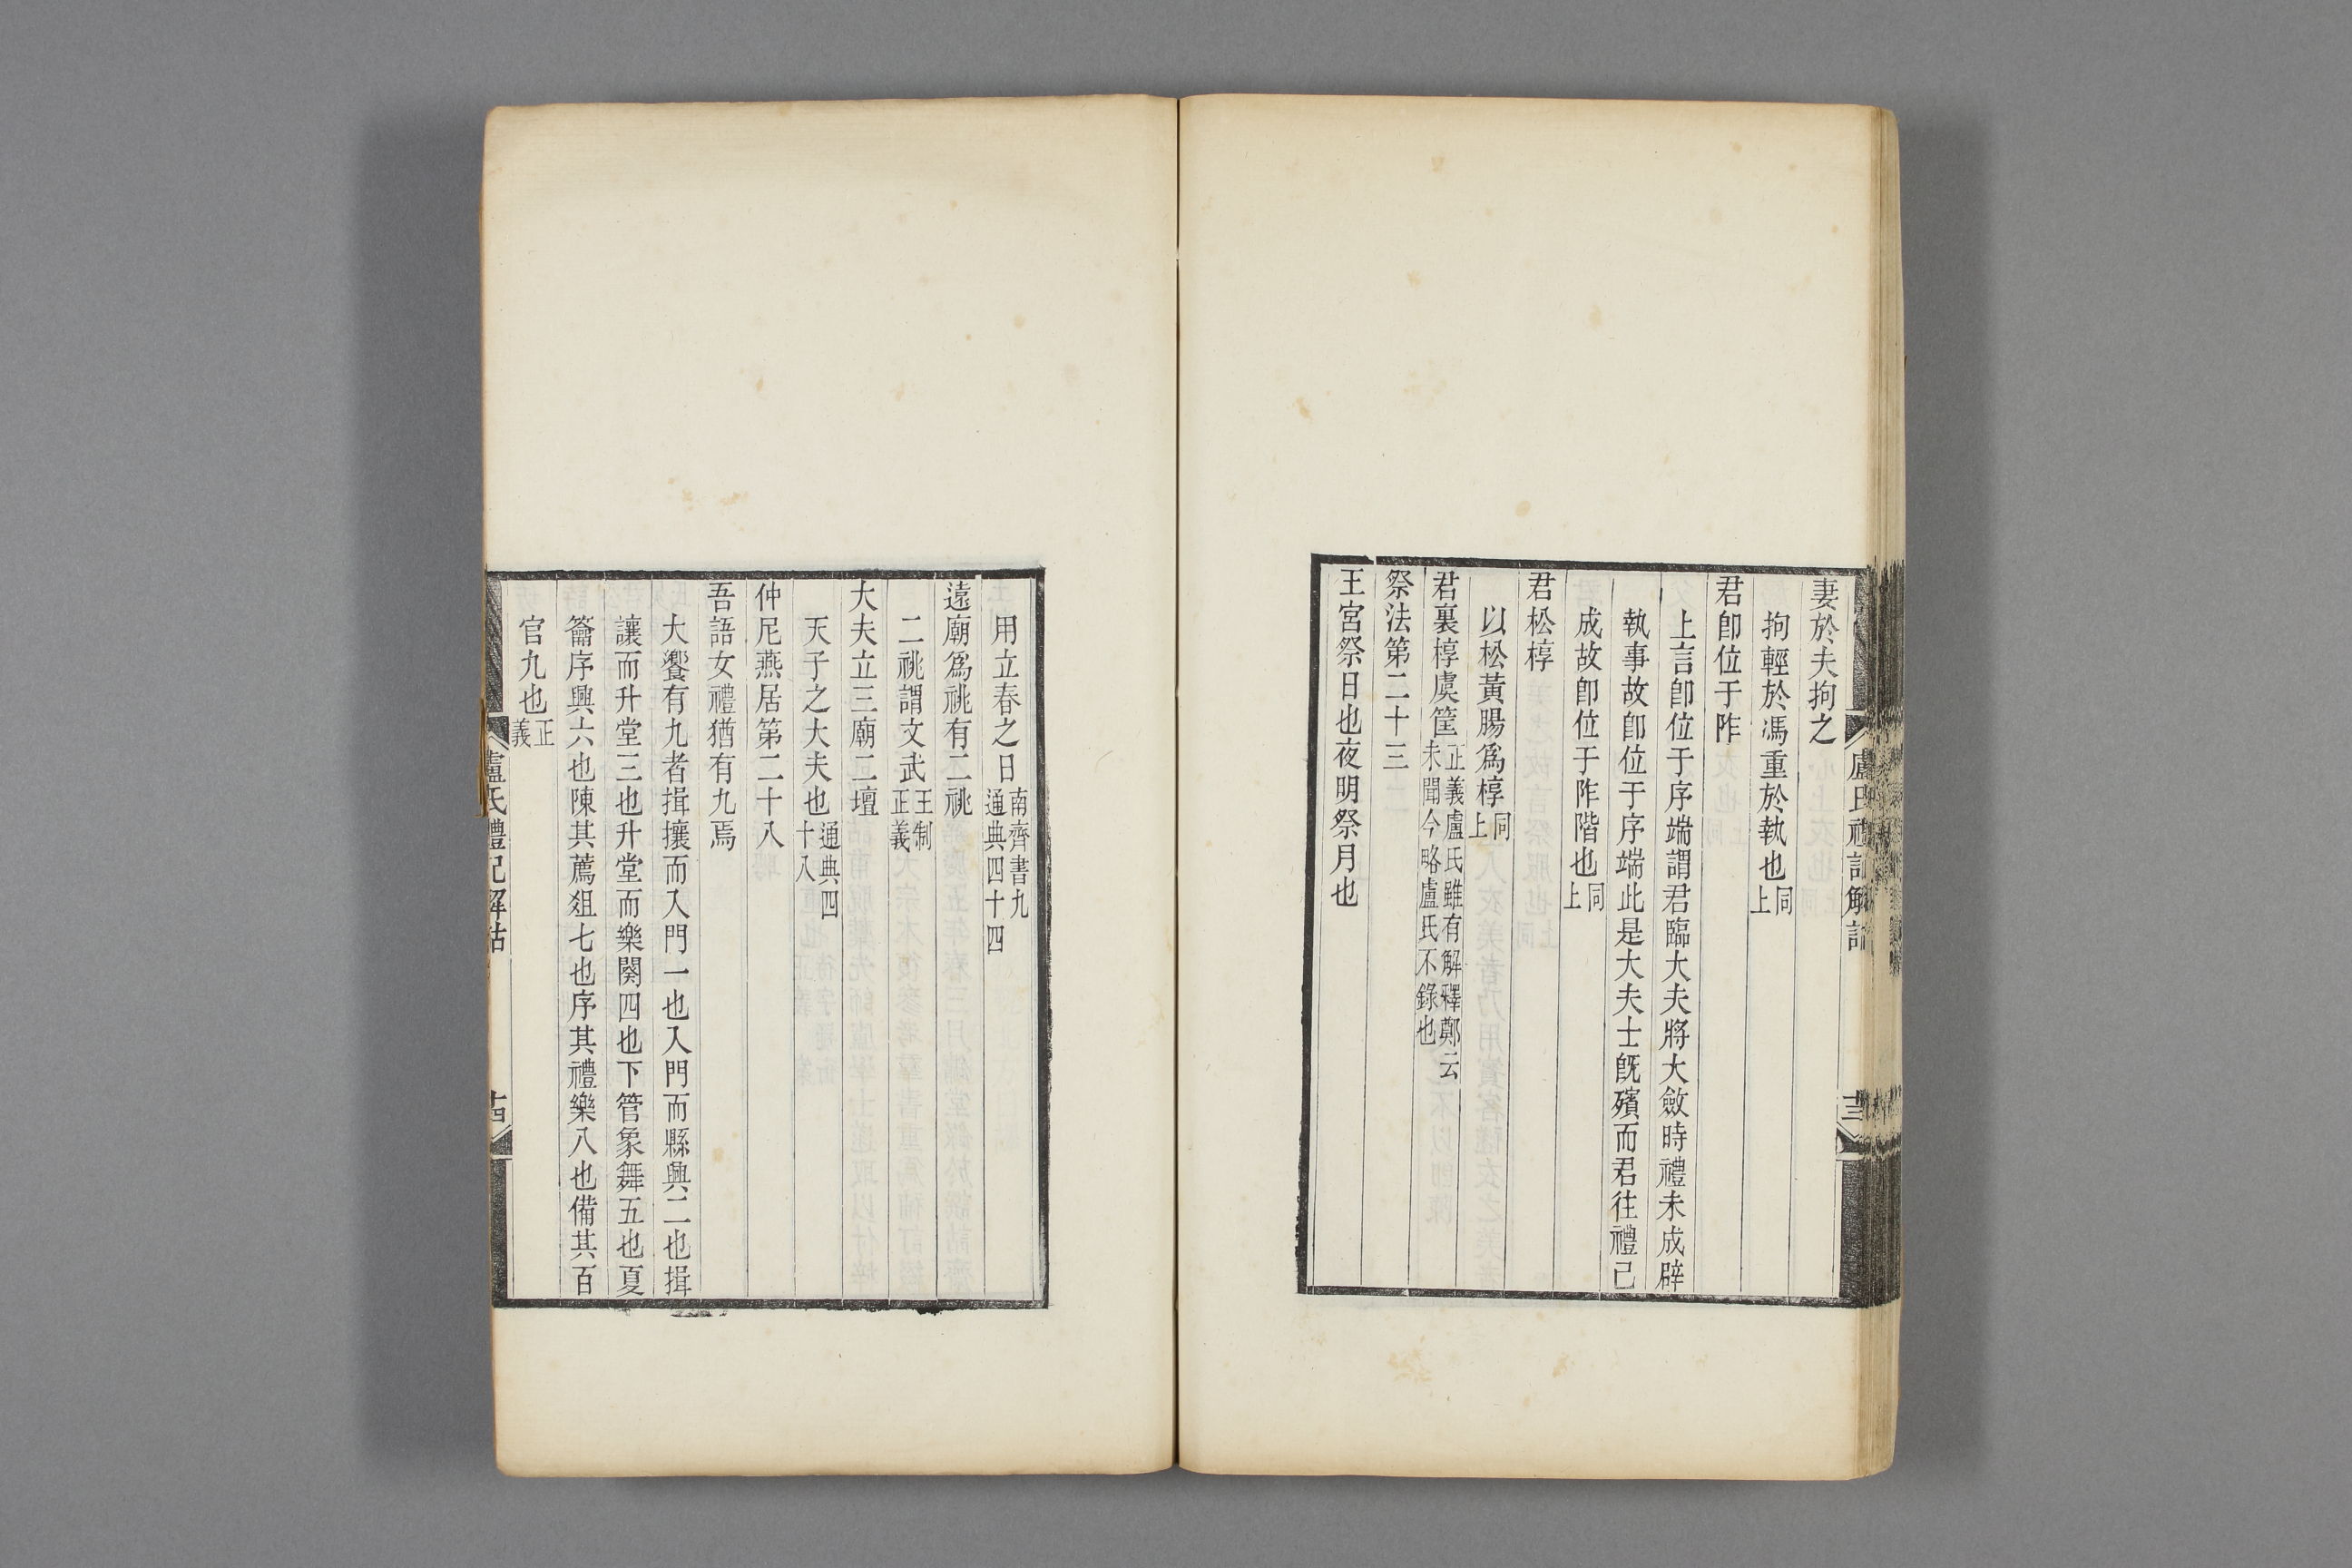 妻於夫拘之
拘輕於馮重於執也同上
君卽位于阼
上言卽位于序端謂君臨大夫將大斂時禮未成辟
執事故卽位于序端此是大夫士旣殯而君往禮已
成故卽位于阼階也同上
君松椁
以松黃腸爲椁同上
君裏椁虞筐正義盧氏雖有解釋鄭云
未聞今略盧氏不錄也
祭法第二十三
王宮祭日也夜明祭月也
盧氏禮記解詁
十三
用立春之日南齊書九
通典四十四
遠廟爲祧有二祧
二祧謂文武王制
正義
大夫立三廟二壇
天子之大夫也通典四
十八
仲尼燕居第二十八
吾語女禮猶有九焉
大饗有九者揖攘而入門一也入門而縣興二也揖
讓而升堂三也升堂而樂闋四也下管象舞五也夏
籥序興六也陳其薦俎七也序其禮樂八也備其百
官九也正義
盧氏禮記解詁
十四